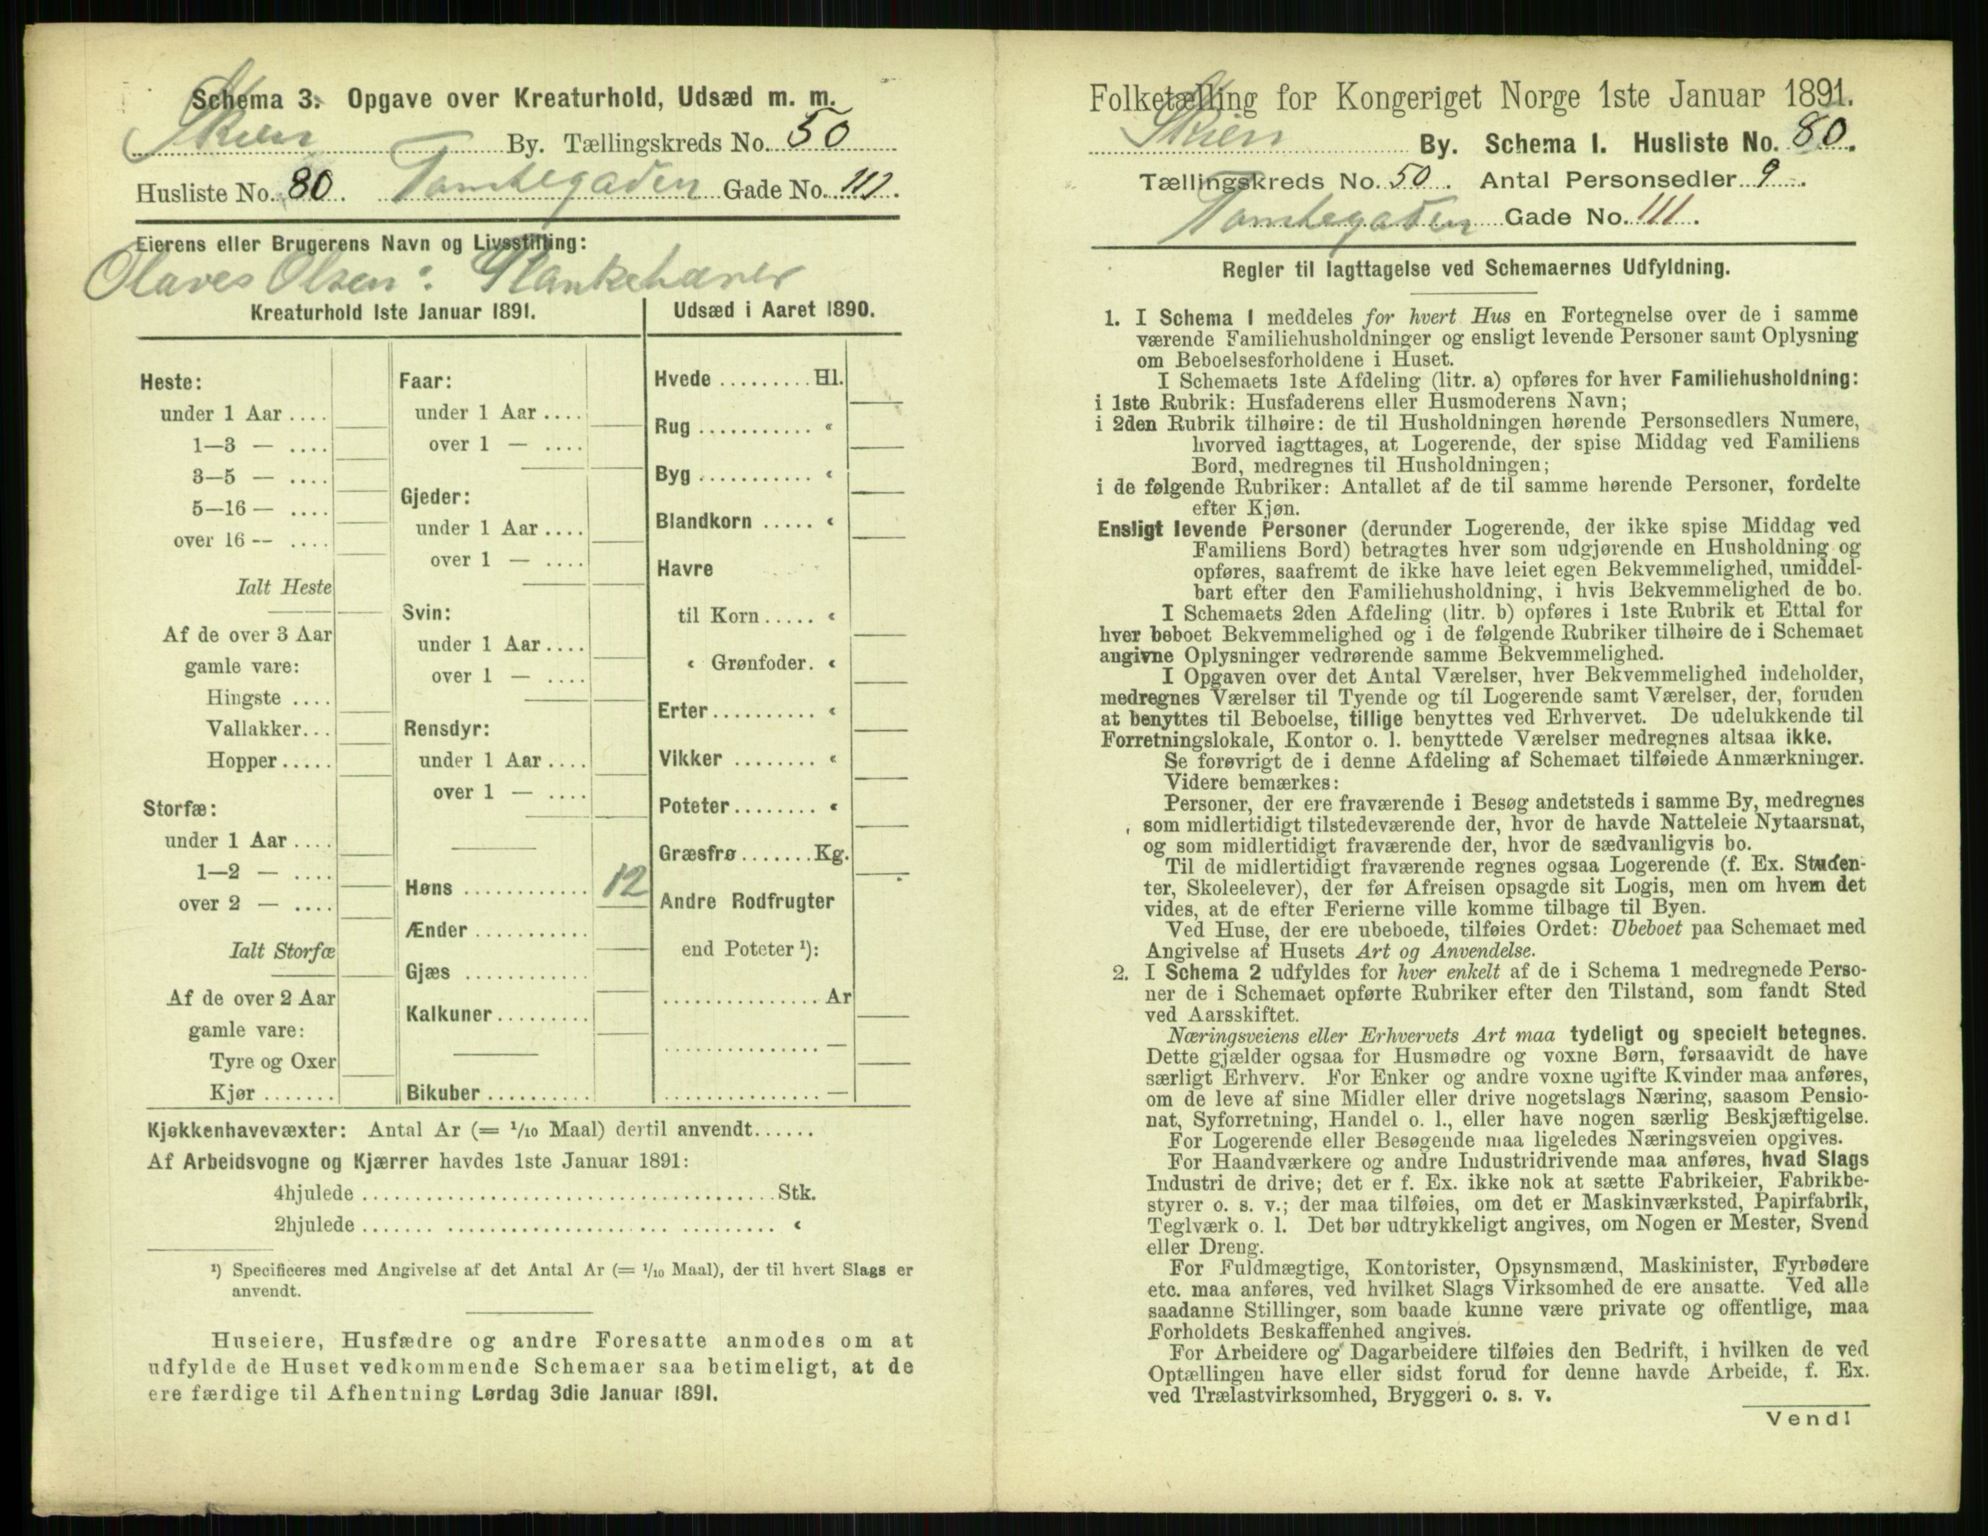 Schema 3. Opgave over Kreaturhold, Udsæd m. m.
Skien By. Tællingskreds No. 50
Husliste No. 80. Tomtegaden Gade No. 111.
Eierens eller Brugerens Navn og Livsstilling:
Olaves Olsen: Plankebærer
Kreaturhold 1ste Januar 1891.
Heste:
under 1 Aar ....
1—3 — ....
3—5 — ....
5—16 — ....
over 16 — ....
Ialt Heste
Af de over 3 Aar
gamle vare:
Hingste ....
Vallakker...
Hopper.....
Storfæ:
under 1 Aar ....
1—2 — ....
over 2 — ....
Ialt Storfæ
Af de over 2 Aar
gamle vare:
Tyre og Oxer
Kjør .......
Faar:
under 1 Aar ....
over 1 — ....
Gjeder:
under 1 Aar ....
over 1 — ....
Svin:
under 1 Aar ....
over 1 — ....
Rensdyr:
under 1 Aar ....
over 1 — ....
Høns ............ 12
Ænder ...........
Gjæs ............
Kalkuner.........
Bikuber ..........
Udsæd i Aaret 1890.
Hvede .........Hl.
Rug ........... «
Byg ........... «
Blandkorn ..... «
Havre
til Korn ..... «
« Grønfoder. «
Erter.......... «
Vikker ........ «
Poteter........ «
Græsfrø.......Kg.
Andre Rodfrugter
end Poteter ¹):
............... Ar
............... —
............... —
Kjøkkenhavevæxter: Antal Ar (= 1/10 Maal) dertil anvendt......
Af Arbeidsvogne og Kjærrer havdes 1ste Januar 1891:
4hjulede ....................................... Stk.
2hjulede ....................................... «
¹) Specificeres med Angivelse af det Antal Ar (= 1/10 Maal), der til hvert Slags er
anvendt.
Huseiere, Husfædre og andre Foresatte anmodes om at
udfylde de Huset vedkommende Schemaer saa betimeligt, at de
ere færdige til Afhentning Lørdag 3die Januar 1891.
Folketælling for Kongeriget Norge 1ste Januar 1891.
Skien By. Schema 1. Husliste No. 80.
Tællingskreds No. 50. Antal Personsedler 9.
Tomtegaden Gade No. 111.
Regler til Iagttagelse ved Schemaernes Udfyldning.
1. I Schema 1 meddeles for hvert Hus en Fortegnelse over de i samme
værende Familiehusholdninger og ensligt levende Personer samt Oplysning
om Beboelsesforholdene i Huset.
I Schemaets 1ste Afdeling (litr. a) opføres for hver Familiehusholdning:
i 1ste Rubrik: Husfaderens eller Husmoderens Navn;
i 2den Rubrik tilhøire: de til Husholdningen hørende Personsedlers Numere,
hvorved iagttages, at Logerende, der spise Middag ved Familiens
Bord, medregnes til Husholdningen;
i de følgende Rubriker: Antallet af de til samme hørende Personer, fordelte
efter Kjøn.
Ensligt levende Personer (derunder Logerende, der ikke spise Middag ved
Familiens Bord) betragtes hver som udgjørende en Husholdning og
opføres, saafremt de ikke have leiet egen Bekvemmelighed, umiddel-
bart efter den Familiehusholdning, i hvis Bekvemmelighed de bo.
I Schemaets 2den Afdeling (litr. b) opføres i 1ste Rubrik et Ettal for
hver beboet Bekvemmelighed og i de følgende Rubriker tilhøire de i Schemaet
angivne Oplysninger vedrørende samme Bekvemmelighed.
I Opgaven over det Antal Værelser, hver Bekvemmelighed indeholder,
medregnes Værelser til Tyende og til Logerende samt Værelser, der, foruden
at benyttes til Beboelse, tillige benyttes ved Erhvervet. De udelukkende til
Forretningslokale, Kontor o. l. benyttede Værelser medregnes altsaa ikke.
Se forøvrigt de i denne Afdeling af Schemaet tilføiede Anmærkninger.
Videre bemærkes:
Personer, der ere fraværende i Besøg andetsteds i samme By, medregnes
som midlertidigt tilstedeværende der, hvor de havde Natteleie Nytaarsnat,
og som midlertidigt fraværende der, hvor de sædvanligvis bo.
Til de midlertidigt fraværende regnes ogsaa Logerende (f. Ex. Studen-
ter, Skoleelever), der før Afreisen opsagde sit Logis, men om hvem det
vides, at de efter Ferierne ville komme tilbage til Byen.
Ved Huse, der ere ubeboede, tilføies Ordet: Ubeboet paa Schemaet med
Angivelse af Husets Art og Anvendelse.
2. I Schema 2 udfyldes for hver enkelt af de i Schema 1 medregnede Perso-
ner de i Schemaet opførte Rubriker efter den Tilstand, som fandt Sted
ved Aarsskiftet.
Næringsveiens eller Erhvervets Art maa tydeligt og specielt betegnes.
Dette gjælder ogsaa for Husmødre og voxne Børn, forsaavidt de have
særligt Erhverv. For Enker og andre voxne ugifte Kvinder maa anføres,
om de leve af sine Midler eller drive nogetslags Næring, saasom Pensio-
nat, Syforretning, Handel o. l., eller have nogen særlig Beskjæftigelse.
For Logerende eller Besøgende maa ligeledes Næringsveien opgives.
For Haandværkere og andre Industridrivende maa anføres, hvad Slags
Industri de drive; det er f. Ex. ikke nok at sætte Fabrikeier, Fabrikbe-
styrer o. s. v.; der maa tilføies, om det er Maskinværksted, Papirfabrik,
Teglværk o. l. Det bør udtrykkeligt angives, om Nogen er Mester, Svend
eller Dreng.
For Fuldmægtige, Kontorister, Opsynsmænd, Maskinister, Fyrbødere
etc. maa anføres, ved hvilket Slags Virksomhed de ere ansatte. Ved alle
saadanne Stillinger, som baade kunne være private og offentlige, maa
Forholdets Beskaffenhed angives.
For Arbeidere og Dagarbeidere tilføies den Bedrift, i hvilken de ved
Optællingen have eller sidst forud for denne havde Arbeide, f. Ex.
ved Trælastvirksomhed, Bryggeri o. s. v.
Vend!